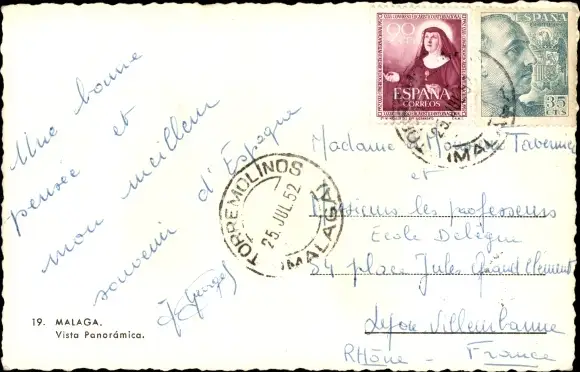 Une bonne
pensée et
mon meilleur
souvenir d'Espagne
19. MALAGA.
Vista Panorámica.
TORREMOLINOS
25 JUL. 52
(MALAGA)
90 CTS
ESPAÑA
CORREOS
ESPAÑA
35
CTS
25
(MALAGA)
Madame Tavernier
et
Messieurs les professeurs
École
54 place Jules Grandclément
Lyon Villeurbanne
Rhône - France